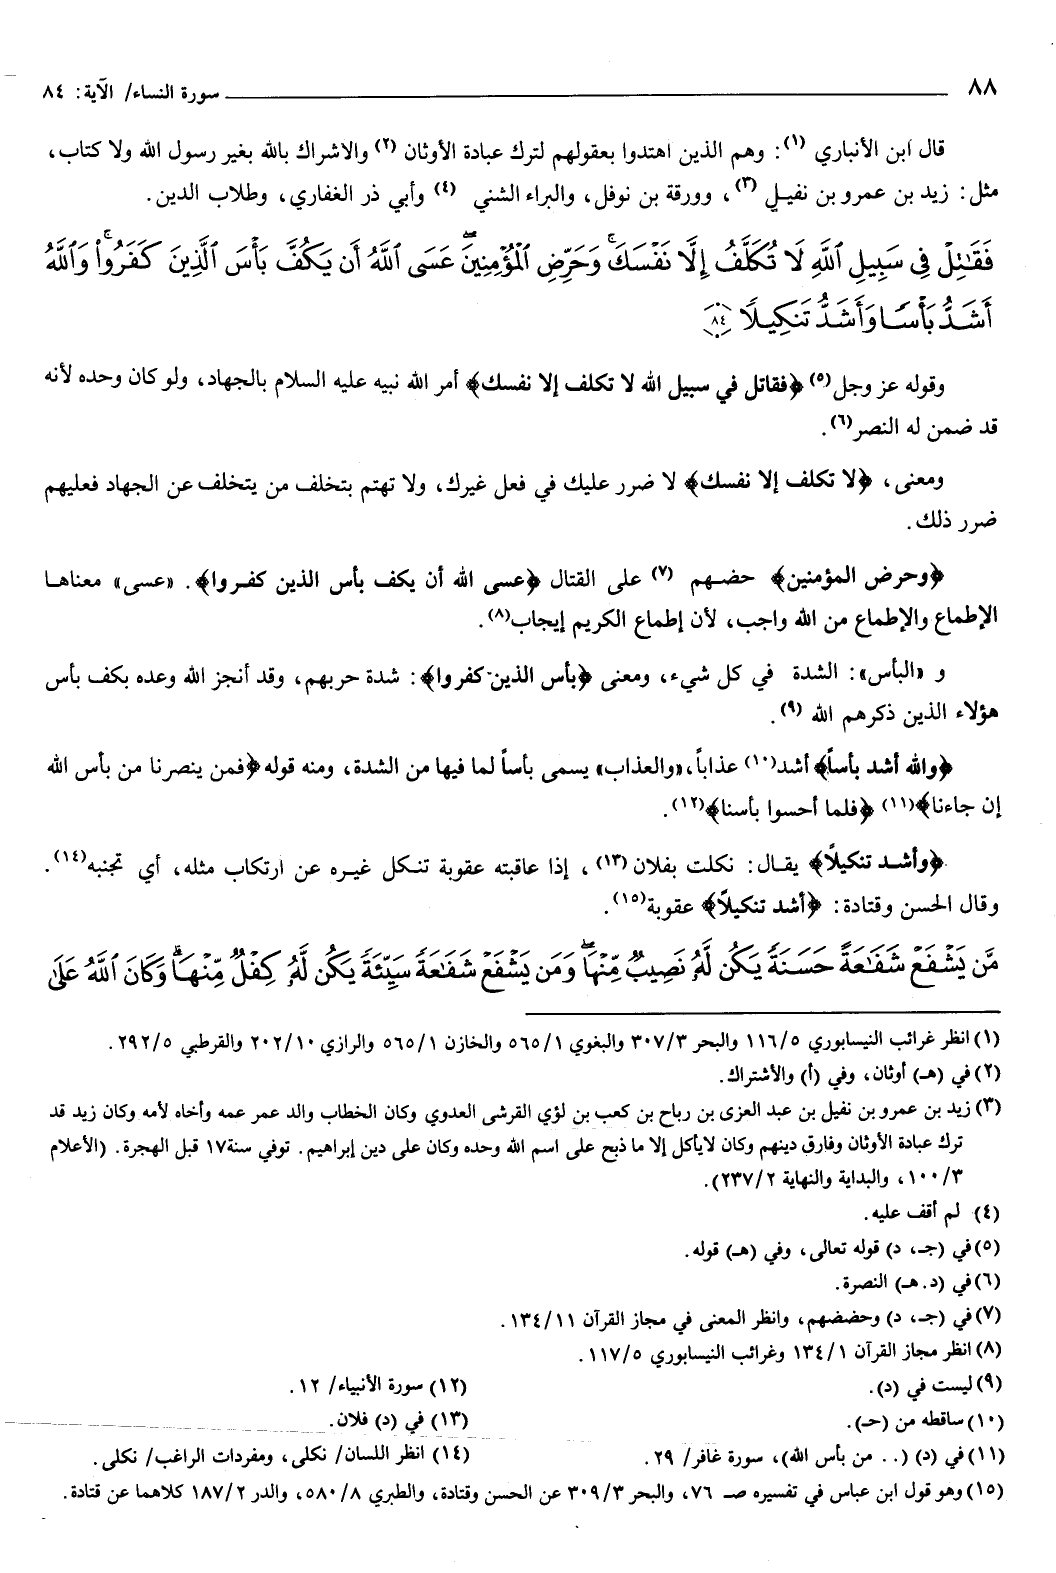 ٨٨ سورة النساء/ الآية: ٨٤
قال ابن الأنباري (١): وهم الذين اهتدوا بعقولهم لترك عبادة الأوثان (٢) والاشراك بالله بغير رسول الله ولا كتاب،
مثل: زيد بن عمرو بن نفيل (٣)، وورقة بن نوفل، والبراء الشني (٤) وأبي ذر الغفاري، وطلاب الدين.
فَقَٰتِلْ فِى سَبِيلِ ٱللَّهِ لَا تُكَلَّفُ إِلَّا نَفْسَكَ ۚ وَحَرِّضِ ٱلْمُؤْمِنِينَ ۖ عَسَى ٱللَّهُ أَن يَكُفَّ بَأْسَ ٱلَّذِينَ كَفَرُوا۟ ۚ وَٱللَّهُ
أَشَدُّ بَأْسًا وَأَشَدُّ تَنكِيلًا ٨٤
وقوله عز وجل(٥) ﴿فقاتل في سبيل الله لا تكلف إلا نفسك﴾ أمر الله نبيه عليه السلام بالجهاد، ولو كان وحده لأنه
قد ضمن له النصر(٦).
ومعنى، ﴿لا تكلف إلا نفسك﴾ لا ضرر عليك في فعل غيرك، ولا تهتم بتخلف من يتخلف عن الجهاد فعليهم
ضرر ذلك.
﴿وحرض المؤمنين﴾ حضهم (٧) على القتال ﴿عسى الله أن يكف بأس الذين كفروا﴾. «عسى» معناها
الإطماع والإطماع من الله واجب، لأن إطماع الكريم إيجاب(٨).
و «البأس»: الشدة في كل شيء، ومعنى ﴿بأس الذين كفروا﴾: شدة حربهم، وقد أنجز الله وعده بكف بأس
هؤلاء الذين ذكرهم الله (٩).
﴿والله أشد بأساً﴾ أشد(١٠) عذاباً، «والعذاب» يسمى بأساً لما فيها من الشدة، ومنه قوله ﴿فمن ينصرنا من بأس الله
إن جاءنا﴾(١١) ﴿فلما أحسوا بأسنا﴾(١٢).
﴿وأشد تنكيلاً﴾ يقال: نكلت بفلان(١٣)، إذا عاقبته عقوبة تنكل غيره عن ارتكاب مثله، أي تجنبه(١٤).
وقال الحسن وقتادة: ﴿أشد تنكيلاً﴾ عقوبة(١٥).
مَّن يَشْفَعْ شَفَٰعَةً حَسَنَةً يَكُن لَّهُۥ نَصِيبٌ مِّنْهَا ۖ وَمَن يَشْفَعْ شَفَٰعَةً سَيِّئَةً يَكُن لَّهُۥ كِفْلٌ مِّنْهَا ۗ وَكَانَ ٱللَّهُ عَلَىٰ
(١) انظر غرائب النيسابوري ١١٦/٥ والبحر ٣٠٧/٣ والبغوي ٥٦٥/١ والخازن ٥٦٥/١ والرازي ٢٠٢/١٠ والقرطبي ٢٩٢/٥.
(٢) في (هـ) أوثان، وفي (أ) والأشتراك.
(٣) زيد بن عمرو بن نفيل بن عبد العزى بن رباح بن كعب بن لؤي القرشي العدوي وكان الخطاب والد عمر عمه وأخاه لأمه وكان زيد قد
ترك عبادة الأوثان وفارق دينهم وكان لايأكل إلا ما ذبح على اسم الله وحده وكان على دين إبراهيم. توفي سنة١٧ قبل الهجرة. (الأعلام
١٠٠/٣، والبداية والنهاية ٢٣٧/٢).
(٤) لم أقف عليه.
(٥) في (جـ، د) قوله تعالى، وفي (هـ) قوله.
(٦) في (د. هـ) النصرة.
(٧) في (جـ، د) وحضضهم، وانظر المعنى في مجاز القرآن ١٣٤/١١.
(٨) انظر مجاز القرآن ١٣٤/١ وغرائب النيسابوري ١١٧/٥.
(٩) ليست في (د). (١٢) سورة الأنبياء/ ١٢.
(١٠) ساقطه من (حـ). (١٣) في (د) فلان.
(١١) في (د) (.. من بأس الله)، سورة غافر/ ٢٩. (١٤) انظر اللسان/ نكلى، ومفردات الراغب/ نكلى.
(١٥) وهو قول ابن عباس في تفسيره صـ ٧٦، والبحر ٣٠٩/٣ عن الحسن وقتادة، والطبري ٥٨٠/٨، والدر ١٨٧/٢ كلاهما عن قتادة.